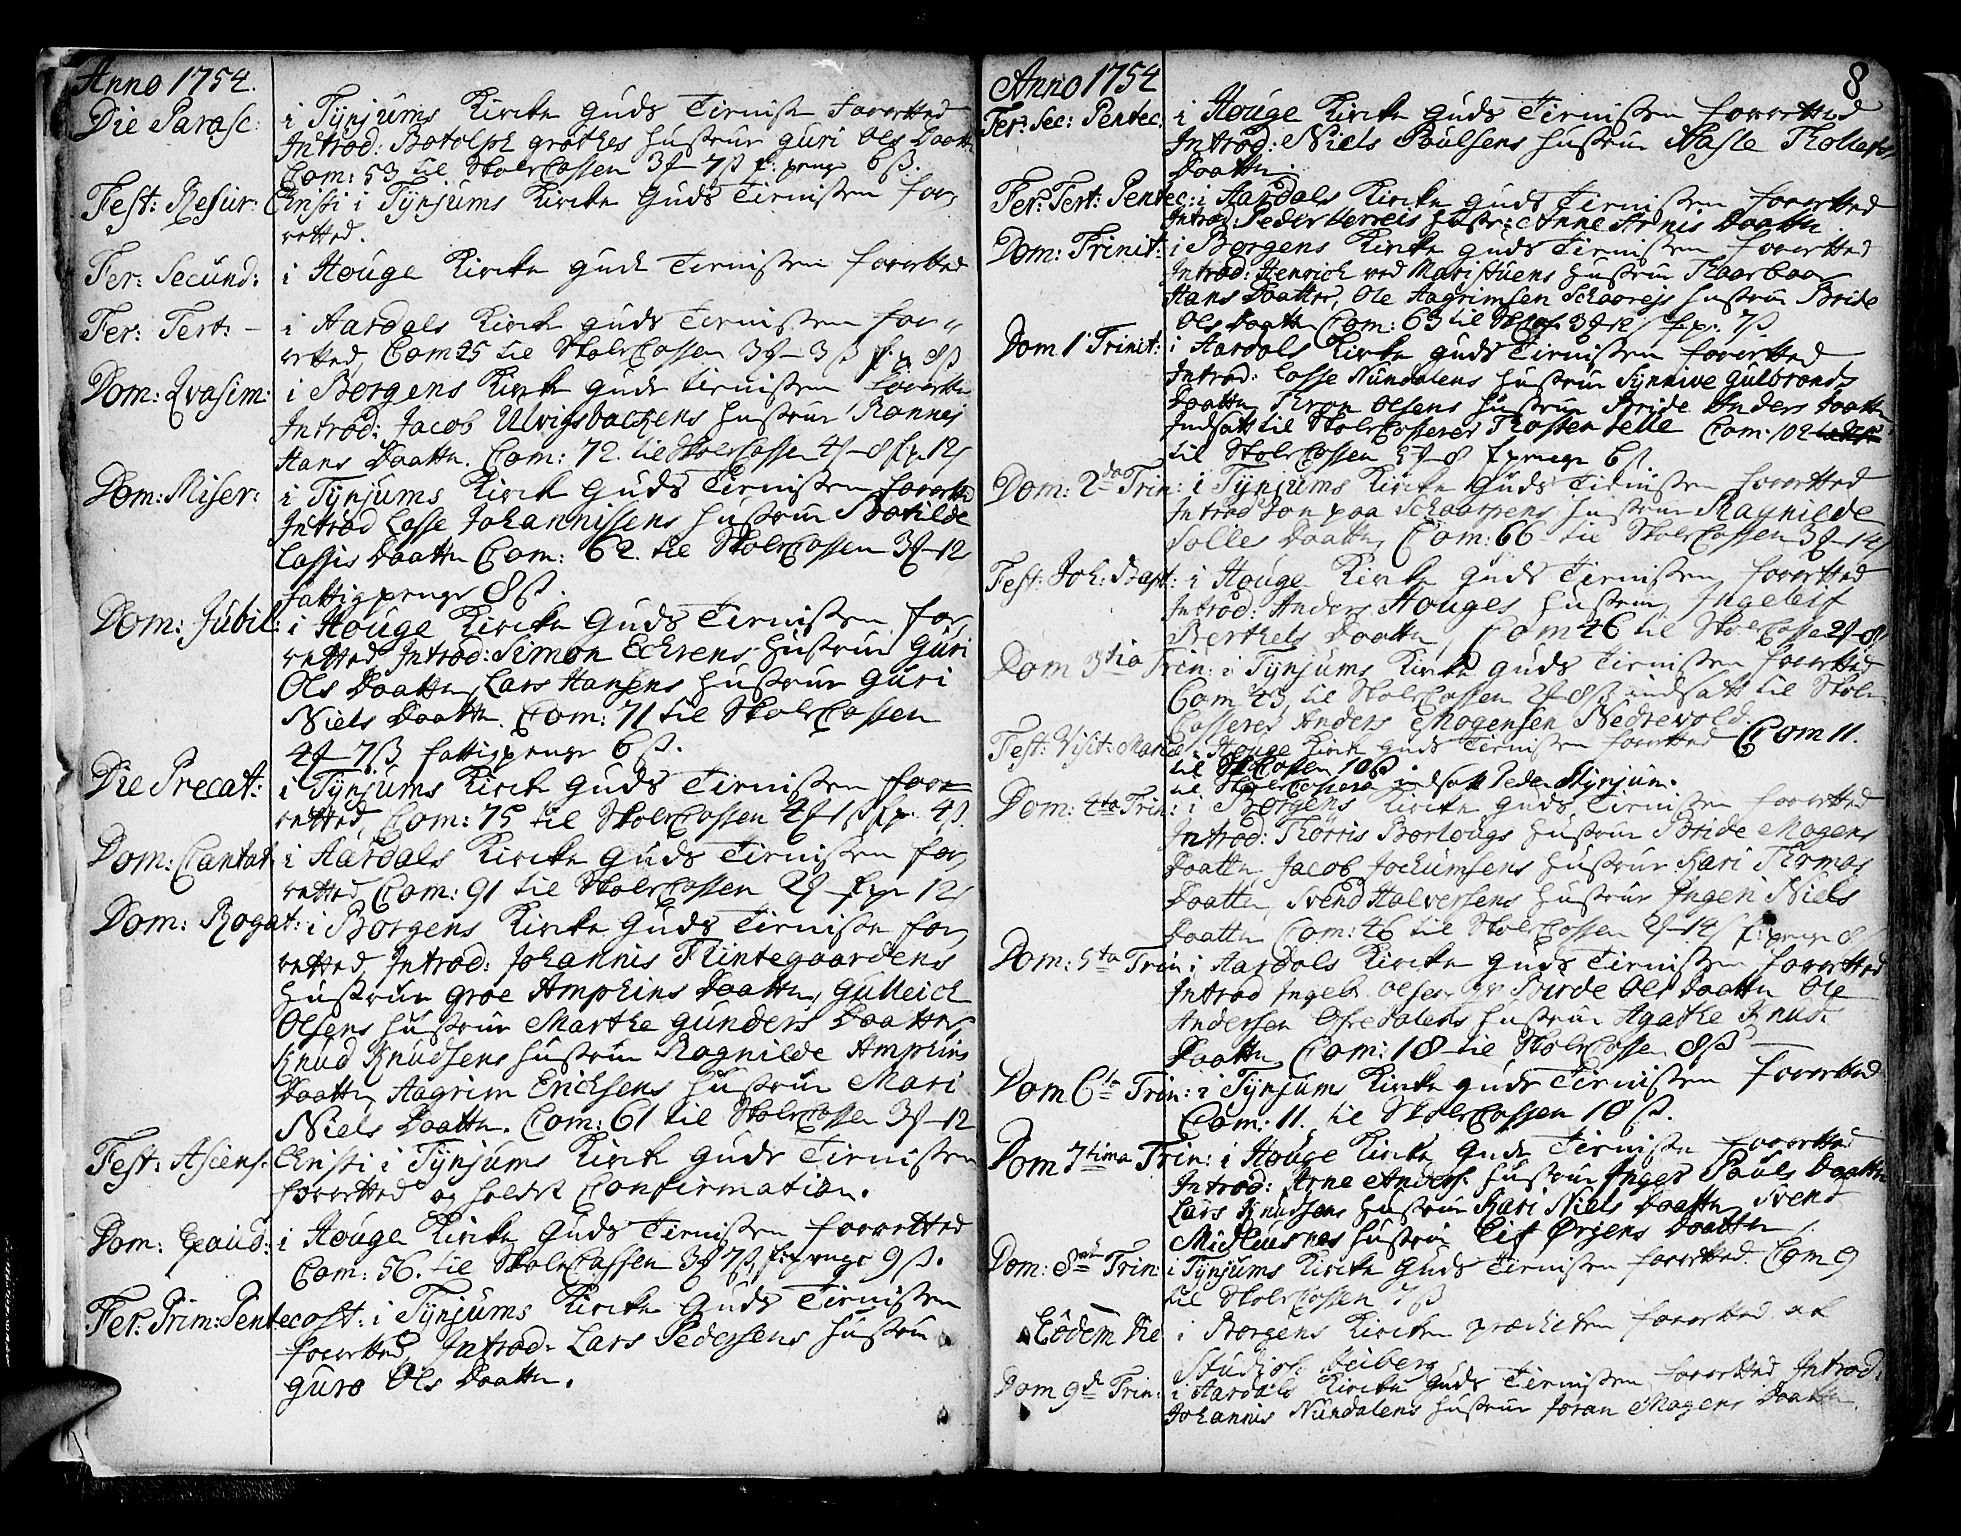 Anno 1754.
Die Parasc: i Tÿnjums Kircke Guds Tieniste forretted
Introd: Botolph grøthes Hustrue Guri Ols Daatter
Com: 53 til Skole Cassen 3 ₰ 7 ß f: penge 6 ß.
Fest: Resur: Christi i Tÿnjums Kircke Guds Tienisten for,
retted.
Fer: Secund: i Houge Kircke Guds Tienisten forretted
Fer: Tert: - i Aardals Kircke Guds Tienisten for,
retted, Com 45 til Skole Cassen 3 ₰ - 3 ß f. p. 8 ß
Dom: Qvasim: i Borgens Kircke Guds Tienisten forretted
Introd: Jacob Ulvigsbackens Hustrue Rannei
Hans Daatter. Com: 72. til Skole Cassen 4 ₰ - 8 f. p. 12 ß
Dom: Miser: i Tÿnjums Kirck Guds Tienisten forretted
Introd Lasse Johannissens Hustrue Botilde
Lassis Daatter Com: 62. til Skole Cassen 3 ₰ - 12 ß
fattigpenge 8 ß.
Dom: Jubil: i Houge Kircke Guds Tienisten for,
retted, Introd: Simon Echrens Hustrue Guri
Ols Daatter, Lars Hansens Hustrue Guri
Niels Daatter. Com: 71 til Skole Cassen
4 ₰ - 7 ß fattigpenge 6 ß.
Die Precat: i Tÿnjums Kirck Guds Tienisten for,
retted, Com: 75 til Skole Cassen 4 ₰ 1 ß f. p. 4 ß.
Dom: Cantat: i Aardals Kircke Guds Tienisten for,
retted, Com: 91 til Skole Cassen 2 ₰ - f. p. 12 ß
Dom: Rogat: i Borgens Kircke Guds Tieniste for,
retted, Introd: Johannis Flintegaardens
Hustrue Groe Amphins Daatter, Gulleick
Olsens Hustrue Marthe Gunders Daatter,
Knud Knudsens Hustrue Ragnilde Amphins
Daatter, Aagrim Ericksens Hustrue Mari
Niels Daatter. Com: 61 til Skole Cassen 3 ₰ - 12
Fest: Ascens: Christi i Tÿnjums Kirck Guds Tienisten
forretted og holdt Confirmation.
Dom: Exaud: i Houge Kircke Guds Tienisten forretted
Com: 56. til Skole Cassen 3 ₰ 7 ß, f: penge 9 ß.
Fer: Prim: Pentecost: i Tÿnjums Kircke Guds Tienisten
forretted, Introd: Lars Pedersens Hustrue
Guro Ols Daatter.
Anno 1754
8
Fer: Sec: Pentec: i Houge Kircke Guds Tienisten forretted
Introd: Niels Poulsens Hustrue Aasle Thollefs
Daatter.
Fer: Tert: Pentec: i Aardals Kircke Guds Tienisten forretted
Introd: Peder Hustr: Anne Arnis Daatter.
Dom: Trinit: i Borgens Kircke Guds Tienisten forretted
Introd: Henrich ved Maristuens Hustrue Thaarboer
Hans Daatter, Ole Aagrimsen Schaareis Hustrue Bride
Ols Daatter Com: 63 til Sk Cas: 3 ₰ 12 ß f. p. 7 ß
Dom 1 Trinit: i Aardals Kircke Guds Tienisten forretted
Introd: Lasse Nundalens Hustrue Synnive Gulbrands
Daatter, Olsens Hustrue Bride Anders Daatter
Indsatt til Skole Casserer Thosten Com: 102
til Skole Cassen 5 ₰ - 8 f. penge 6 ß.
Dom: 2da Trin: i Tÿnjums Kircke Guds Tienisten forretted
Introd Jon paa Schaarpens Hustrue Ragnilde
Daatter, Com: 66 til Skole Cassen 3 ₰ - 14 ß
Fest: Joh: Bapt: i Houge Kircke Guds Tienisten forretted
Introd: Anders Houges Hustrue Ingeleif
Berthels Daatter, Com 46 til Skole Cassen 2 ₰ - 8
Dom 3tia Trin: i Tÿnjums Kircke Guds Tienisten forretted
Com 43, til Skole Cassen 2 ₰ 8 ß indsatt til Skole
Casserer Anders Mogensen Nedrevold.
Fest: Visit: Mariæ: i Houge Kirck Guds Tienisten forretted Com 11.
til Sk Cassen 10 ß
til Skole Casserer indsatt Peder Tynjum.
Dom: 4ta Trin: i Borgens Kircke Guds Tienisten forretted
Introd: Thorris Borlougs Hustrue Bride Mogens
Daatter, Jacob Jochumsens Hustrue Kari Thomas
Daatter, Svend Halversens Hustrue Ingeri Niels
Daatter Com: 46 til Skole Cassen 2 ₰ - 14 ß f: penge 8
Dom: 5ta Trin: i Aardals Kircke Guds Tienisten forretted
Introd Ingeb. Olsens Ols Daatter Ole
Andersen Ofredalens Hustrue Agathe Knuds
Daatter, Com: 18 til Skole Cassen 8 ß
Dom 6ta Trin: i Tÿnjums Kircke Guds Tienisten forretted
Com: 11. til Skole Cassen 10 ß.
Dom 7tima Trin: i Houge Kircke Guds Tienisten forretted
Introd: Arne Anders: Hustrue Inger Pouls Daatter
Lars Knudsens Hustrue Kari Niels Daatter, Svend
Midlusnes Hustrue Eif Ørjens Daatter.
Dom: 8av Trin: i Tÿnjums Kircke Guds Tienisten forretted. Com 9
til Skole Cassen 7 ß
Eôdem Die i Borgens Kircken prædicken forretted af
Studios: Heiberg
Dom 9d Trin: i Aardals Kircke Guds Tienisten forretted Introd:
Johannis Nundalens Hustrue Joran Mogens Daatter.